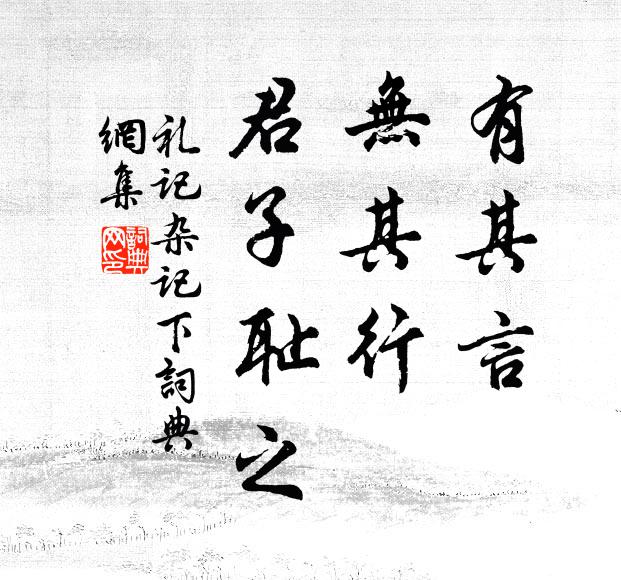 有其言
無其行
君子耻之
礼记杂记下詞典
網集
詞典
网印